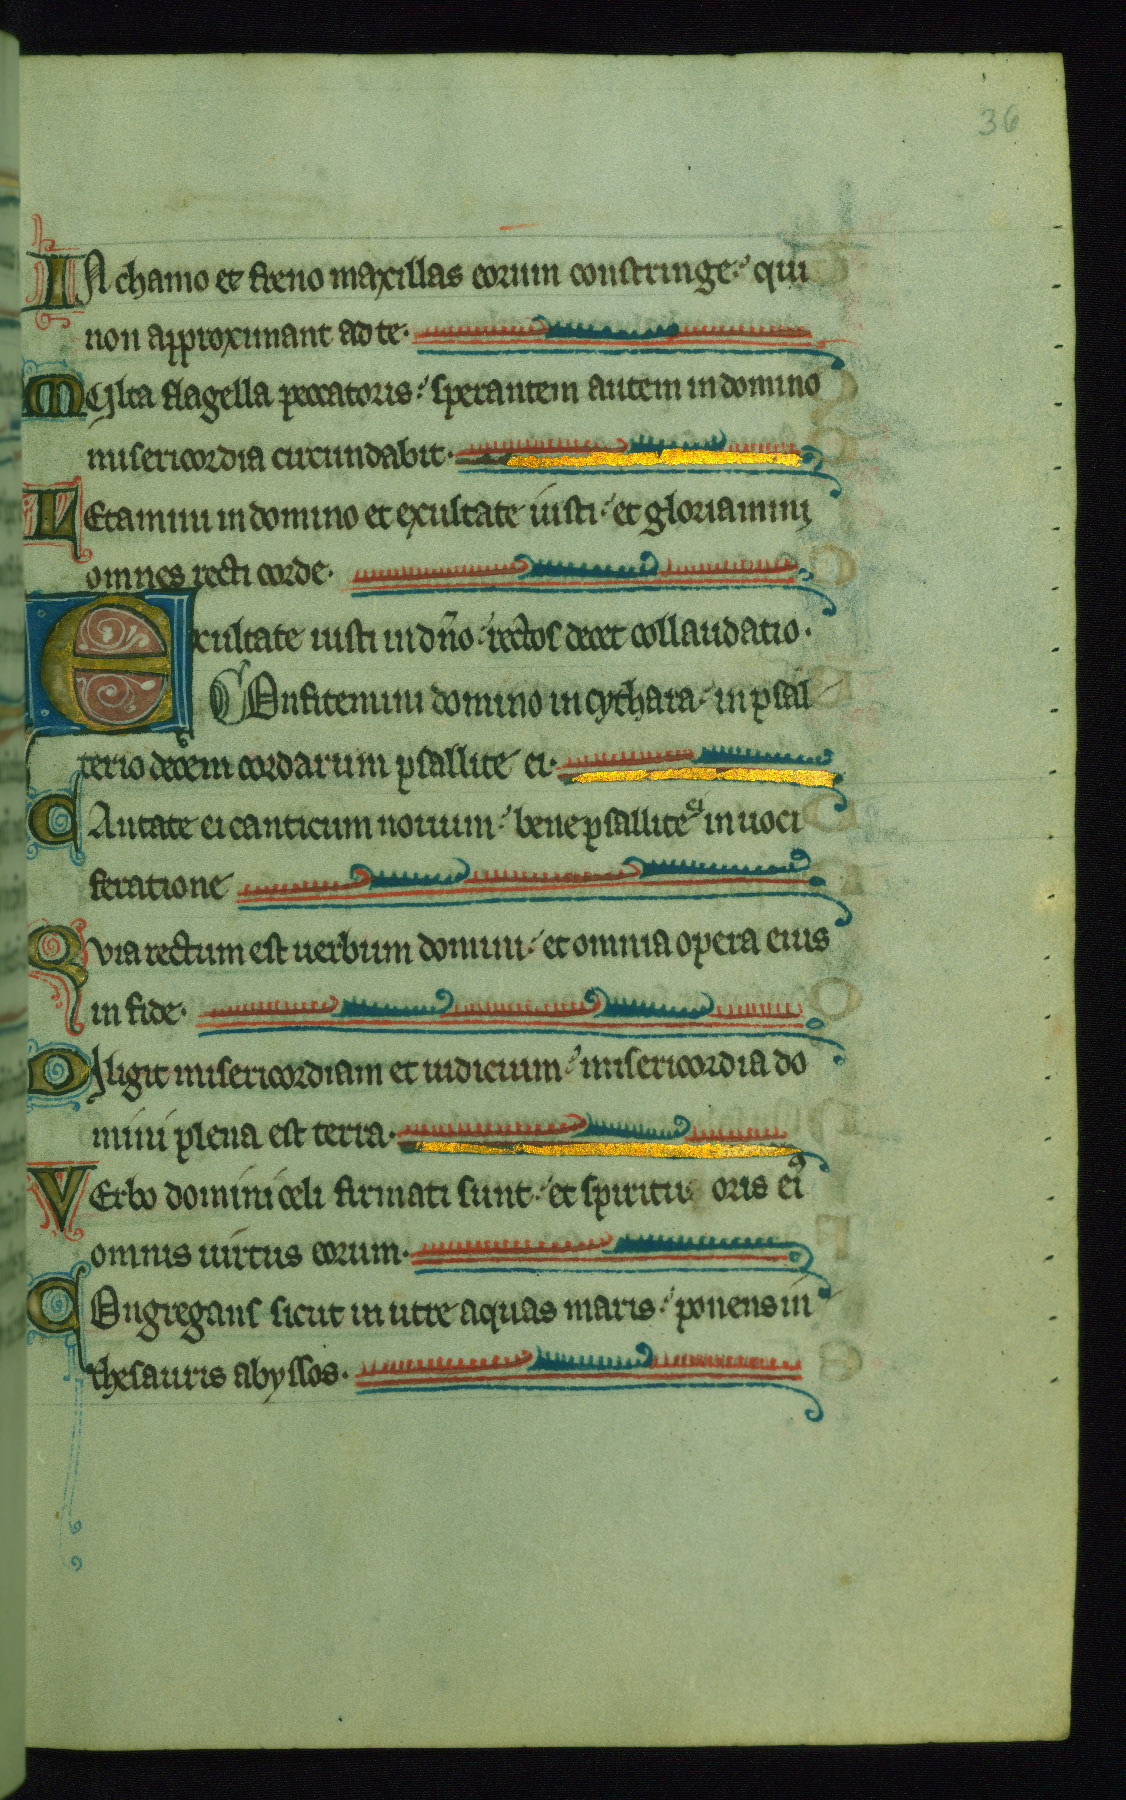 36
IN chamo et freno maxillas eorum constringe: qui
non approximant ad te.
MUlta flagella peccatoris: sperantem autem in domino
misericordia circundabit.
LEtamini in domino et exultate iusti: et gloriamini
omnes recti corde.
Excultate iusti in dño: rectos decet collaudatio.
COnfitemini domino in cythara: in psal
terio decem cordarum psallite ei.
CAntate ei canticum nouum: bene psallite ei in uoci
feratione
Quia rectum est uerbum domini: et omnia opera eius
in fide.
DIligit misericordiam et iudicium: misericordia do
mini plena est terra.
VErbo domini celi firmati sunt: et spiritu oris ei9
omnis uirtus eorum.
COngregans sicut in utre aquas maris: ponens in
thesauris abyssos.